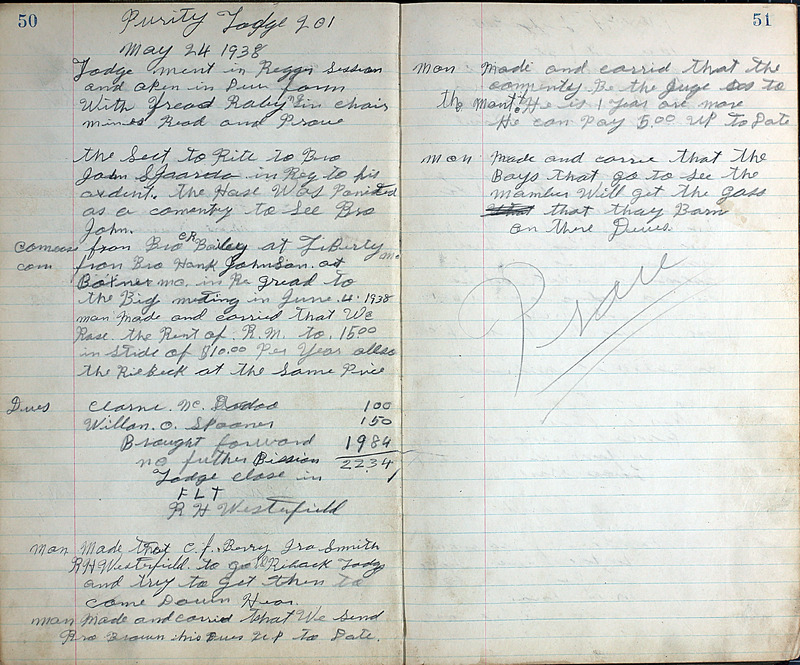 50
Purity Lodge 201
May 24 1938
Lodge ment in Regger Session
and open in Due form
With Gread Raby in chair
mines Read and Prove
the Sect to Rite to Bro
John in Reg to his
axdent. the Hase Was
as a comenty to See Bro
John.
comeus from Bro CR Bailey at Liberty mo
com from Bro Hank Johnson at
mo. in Re gread to
the Big meting in June. 4. 1938
man Made and carried that We
Rase the Rent of R.M. to 15.00
in Stide of $10.00 Per Year allso
the Riebeck at the Same Price
Dues Clarnc Mc. 100
Willan. O. Spooner 150
Brought forward 1984
no futher Bission 2234
Lodge close in
F L T
R H Westerfield
man Made that C. f. Berry Ira Smith
RH Westerfield. to go Riback Lodg
and try to get then to
come Down Hear.
man Made and corrid that We Send
Bro Brown his Dues UP to Date.
51
mon Made and carrid that the
comenty Be the Juge to
the mont. He is 1 Year are more
He can Pay 5.00 UP to Date
mon Made and carrie that the
Boys that go to See the
mamber Will get the gass
that thay Barn
on there Dues.
Prove